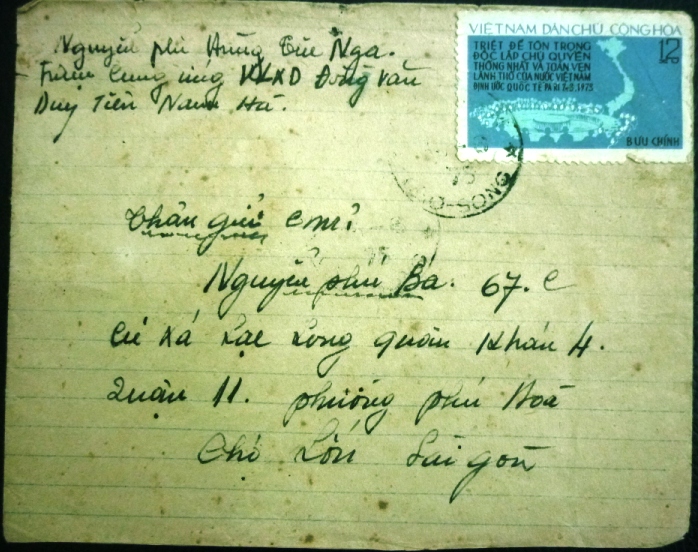 Nguyễn phú Hùng Tue Nga.
Trạm Cung ứng VLXD Đồng Văn
Duy Tiên Nam Hà.
VIỆT NAM DÂN CHỦ CỘNG HÒA
TRIỆT ĐỂ TÔN TRỌNG
ĐỘC LẬP CHỦ QUYỀN
THỐNG NHẤT VÀ TOÀN VẸN
LÃNH THỔ CỦA NƯỚC VIỆT NAM
ĐỊNH ƯỚC QUỐC TẾ PA RI 2-3-1973
12 xu
BƯU CHÍNH
75
O-SONG
Thân gửi
Nguyễn phú Bá. 67. C
Cư xá Lạc Long quân Khán 4.
Quận 11. phường phú Hoà
Chợ Lớn Sài gòn